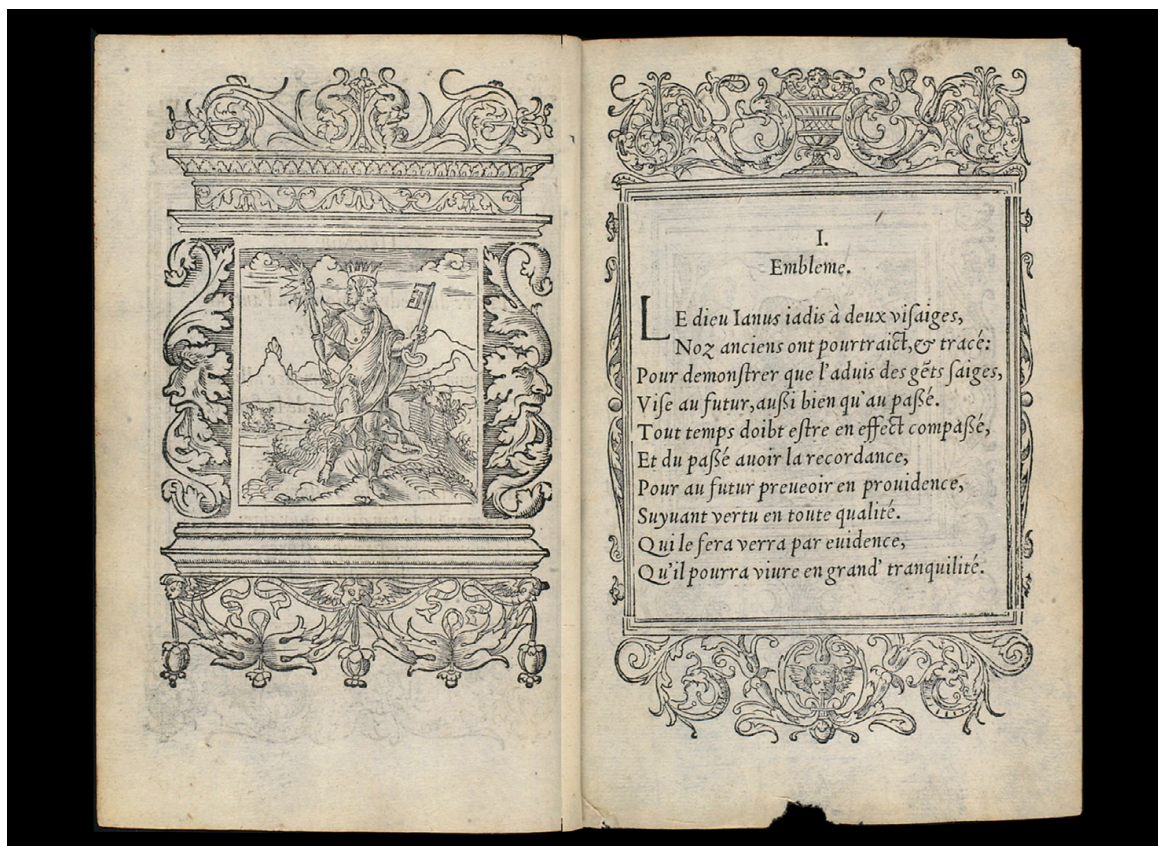 I.
Embleme.
LE dieu Ianus iadis à deux viſaiges,
Noz anciens ont pourtraict,& tracé:
Pour demonſtrer que l'aduis des gẽts ſaiges,
Viſe au futur,auſſi bien qu'au paſſé.
Tout temps doibt eſtre en effect compaſſé,
Et du paſſé auoir la recordance,
Pour au futur preueoir en prouidence,
Suyuant vertu en toute qualité.
Qui le fera verra par euidence,
Qu'il pourra viure en grand' tranquilité.